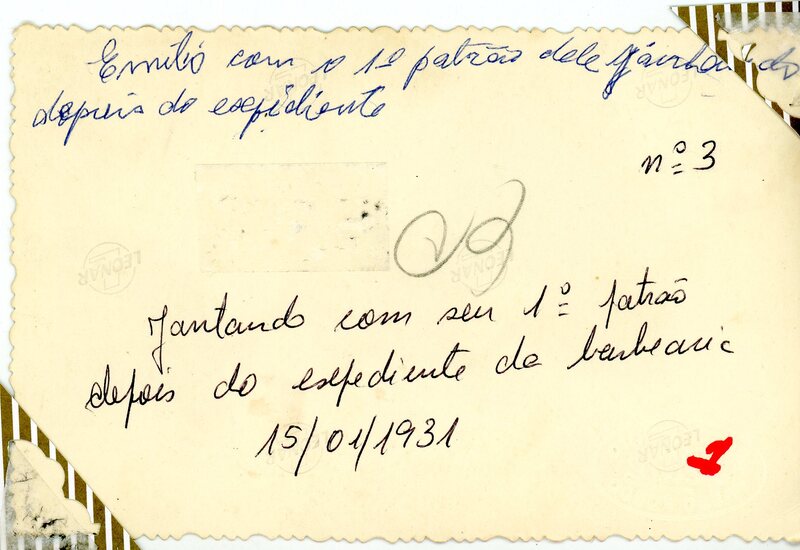 Emilio com o 1º patrão dele jantando
depois do expediente
nº 3
Jantando com seu 1º patrão
depois do expediente da barbearia
15/01/1931
LEONAR
LEONAR
LEONAR
1